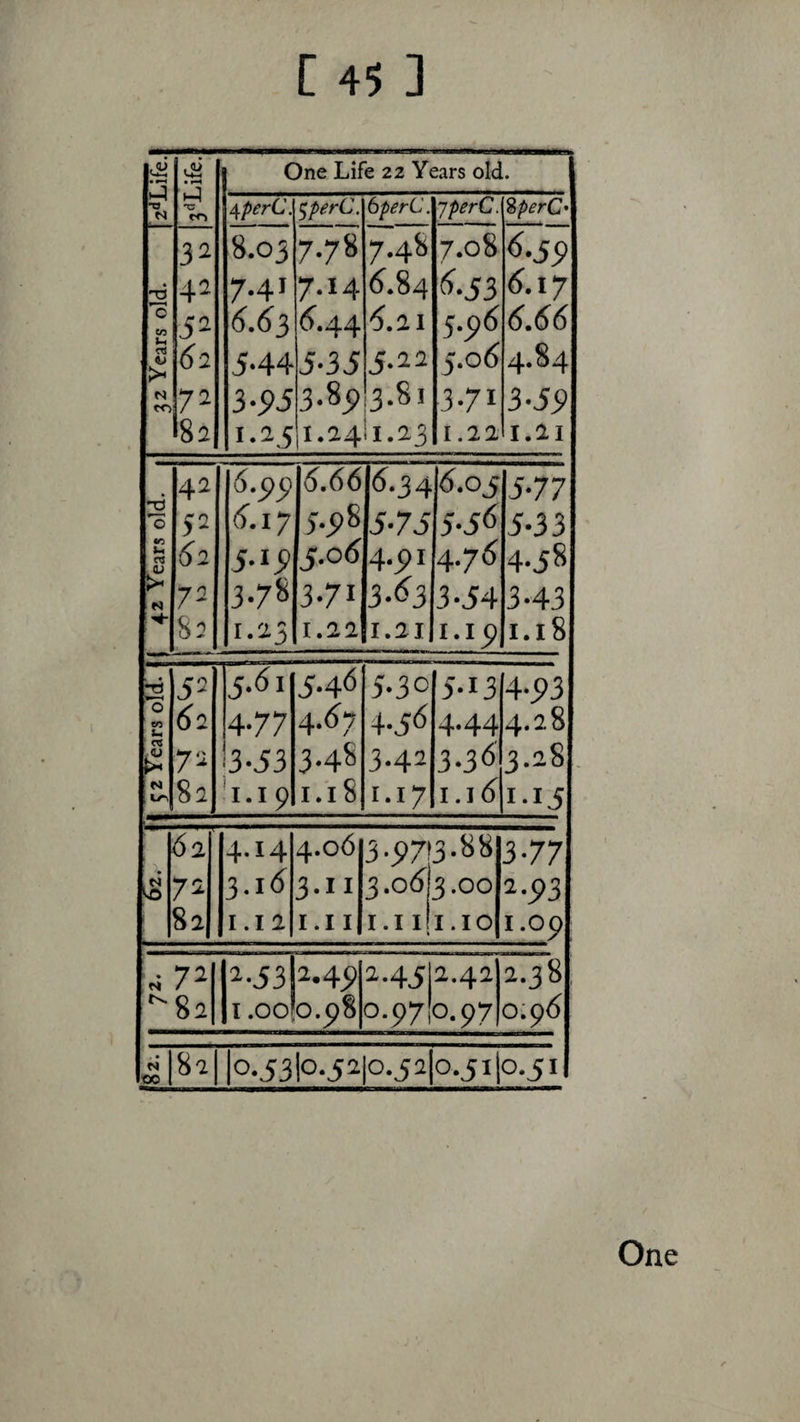 [ 45 ]
2d Life. 3d Life. One Life 22 Years old.
4perC. 5perC. 6perC. 7perC. 8perC.
32 Years old.
32 8.03 7.78 7.48 7.08 6.59
42 7.41 7.14 6.84 6.53 6.17
52 6.63 6.44 6.21 5.96 6.66
62 5.44 5.35 5.22 5.06 4.84
72 3.95 3.89 3.81 3.71 3.59
82 1.25 1.24 1.23 1.22 1.21
42 Years old.
42 6.99 6.66 6.34 6.05 5.77
52 6.17 5.98 5.75 5.56 5.33
62 5.19 5.06 4.91 4.76 4.58
72 3.78 3.71 3.63 3.54 3.43
82 1.23 1.22 1.21 1.19 1.18
52 Years old.
52 5.61 5.46 5.30 5.13 4.93
62 4.77 4.67 4.56 4.44 4.28
72 3.53 3.48 3.42 3.36 3.28
82 1.19 1.18 1.17 1.16 1.15
62.
62 4.14 4.06 3.97 3.88 3.77
72 3.16 3.11 3.06 3.00 2.93
82 1.12 1.11 1.11 1.10 1.09
72.
72 2.53 2.49 2.45 2.42 2.38
82 1.00 0.98 0.97 0.97 0.96
82. 82 0.53 0.52 0.52 0.51 0.51
One